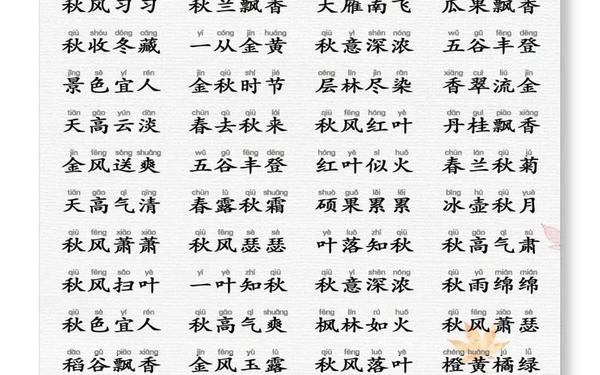 秋风习习 秋兰飘香 大雁南飞 瓜果飘香
qiū shōu dōng cáng yī cóng jīn huáng qiū yì shēn nóng wǔ gǔ fēng dēng
秋收冬藏 一从金黄 秋意深浓 五谷丰登
jǐng sè yí rén jīn qiū shí jié céng lín jìn rǎn xiāng cuì liú jīn
景色宜人 金秋时节 层林尽染 香翠流金
tiān gāo yún dàn chūn qù qiū lái qiū fēng hóng yè dān guì piāo xiāng
天高云淡 春去秋来 秋风红叶 丹桂飘香
jīn fēng sòng shuǎng wǔ gǔ fēng dēng hóng yè sì huǒ chūn lán qiū jú
金风送爽 五谷丰登 红叶似火 春兰秋菊
tiān gāo qì qīng chūn lù qiū shuāng shuò guǒ lěi lěi bīng hú qiū yuè
天高气清 春露秋霜 硕果累累 冰壶秋月
qiū fēng xiāo xiāo qiū fēng sè sè yè luò zhī qiū qiū gāo qì sù
秋风萧萧 秋风瑟瑟 叶落知秋 秋高气肃
qiū fēng sǎo yè yī yè zhī qiū qiū yì shēn nóng qiū yǔ mián mián
秋风扫叶 一叶知秋 秋意深浓 秋雨绵绵
qiū sè yí rén qiū gāo qì shuǎng fēng lín rú huǒ qiū fēng xiāo sè
秋色宜人 秋高气爽 枫林如火 秋风萧瑟
dào gǔ piāo xiāng jīn fēng yù lù qiū fēng luò yè chéng huáng jú lǜ
稻谷飘香 金风玉露 秋风落叶 橙黄橘绿